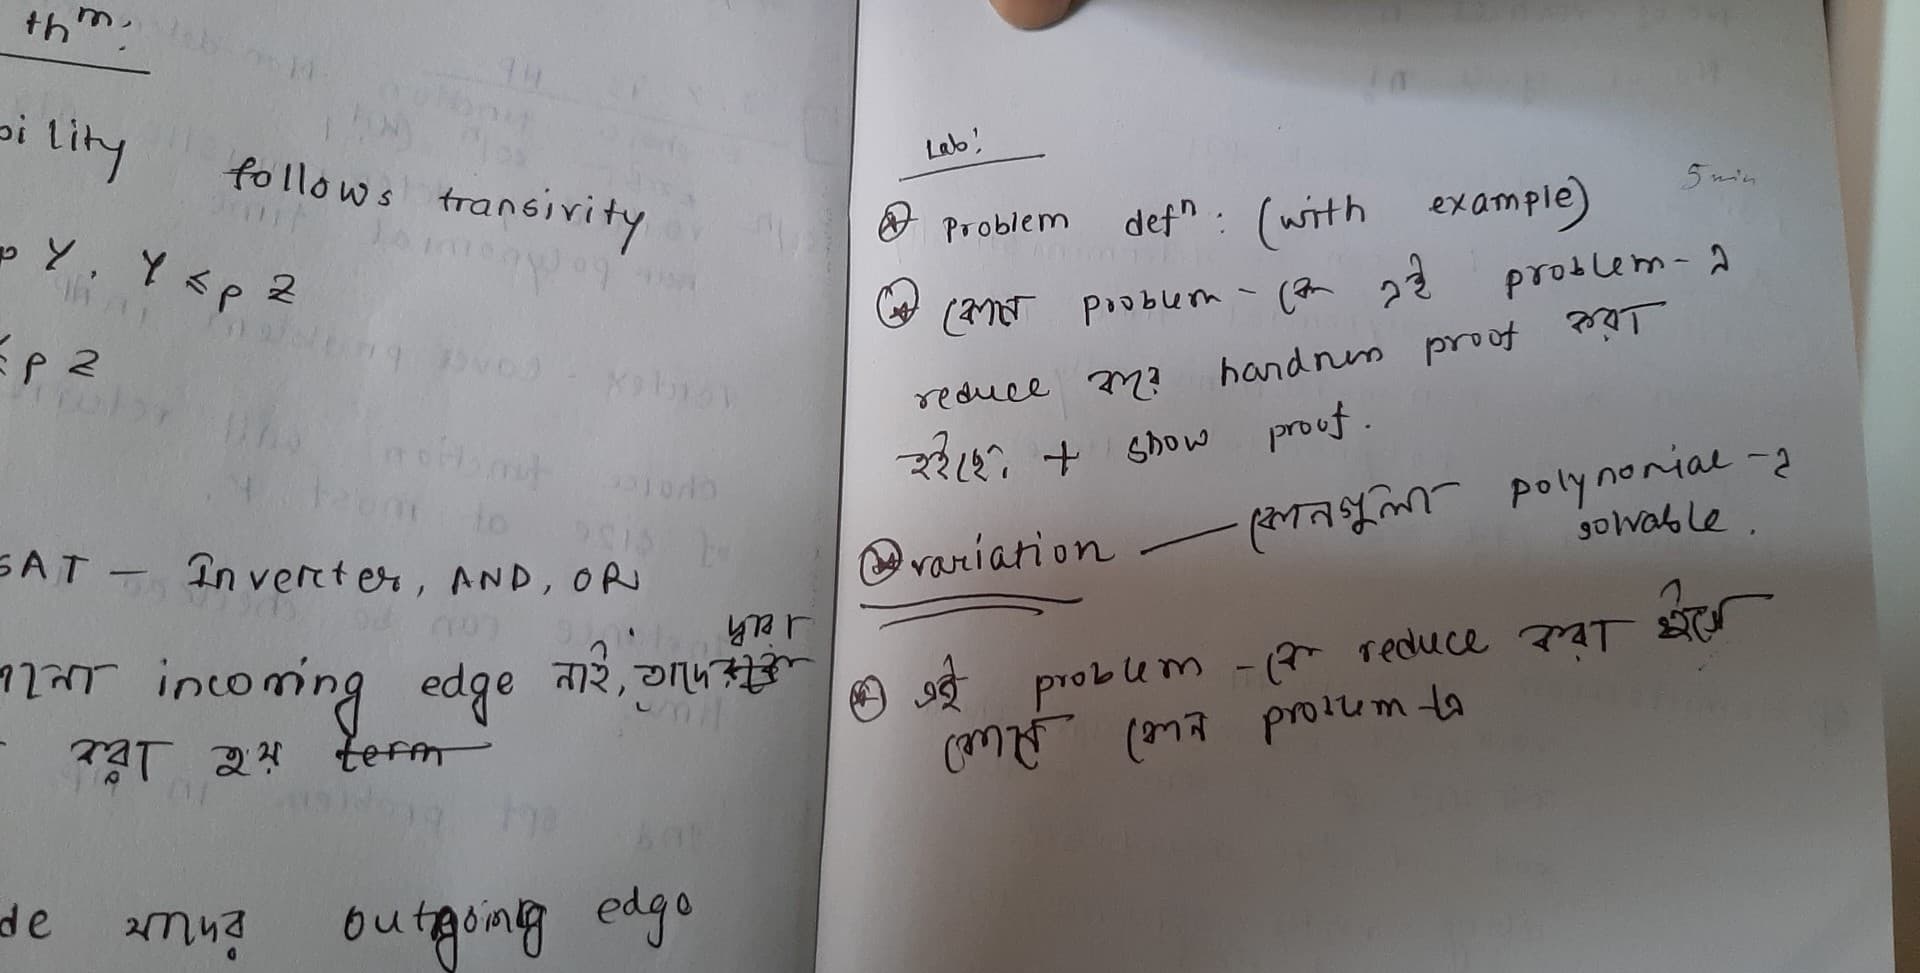 thm:
bility follows transirity
p Y, Y ≤p Z
≤p Z
SAT — Inverter, AND, OR
incoming edge নাই, তাদের দ্বারা
করা হয় term
de যাদের outgoing edge
Lab:
Problem defn: (with example) 5 min
কোন problem - কে এই problem - এ
reduce করে hardness proof করা
হইছে। + show proof.
variation — কোনগুলা polynomial - এ
solvable.
এই problem - কে reduce করা হইছে
কোন কোন problem এ